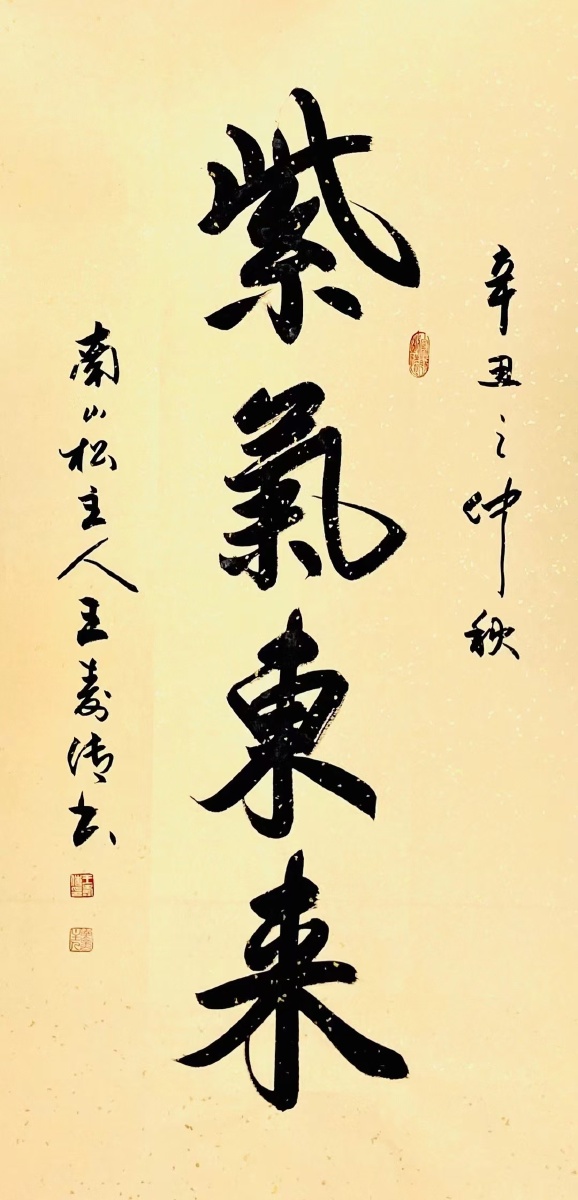 辛丑之仲秋
紫氣東来
南山松主人王壽清书